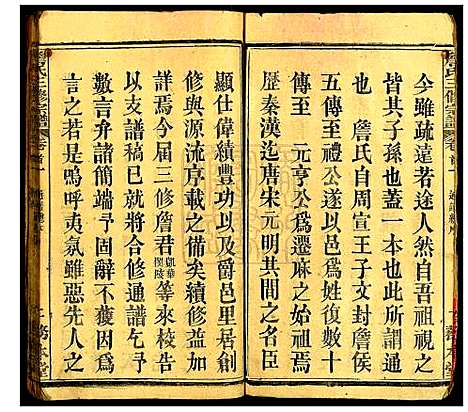 今雖疏遠若途人然自吾祖視之
皆其子孫也蓋一本也此所謂通
也 詹氏自周宣王子文封詹侯
五傳至 禮公遂以邑爲姓何傳
至 元亨公爲遷麻之始祖焉
歷秦漢迄唐宋元明其間之名臣
顯仕偉績豐功以及爵邑里居創
修與源流序載之備矣續修益加
詳焉今届三修詹君凱華 撲陵等來梭告
以支譜稿已就將合修通譜乞予
數言弁諸簡端予不獲因爲
言之若是嗚呼夷氛雖惡先人之
詹氏三修宗譜
卷首一
通譜總序
敦本堂